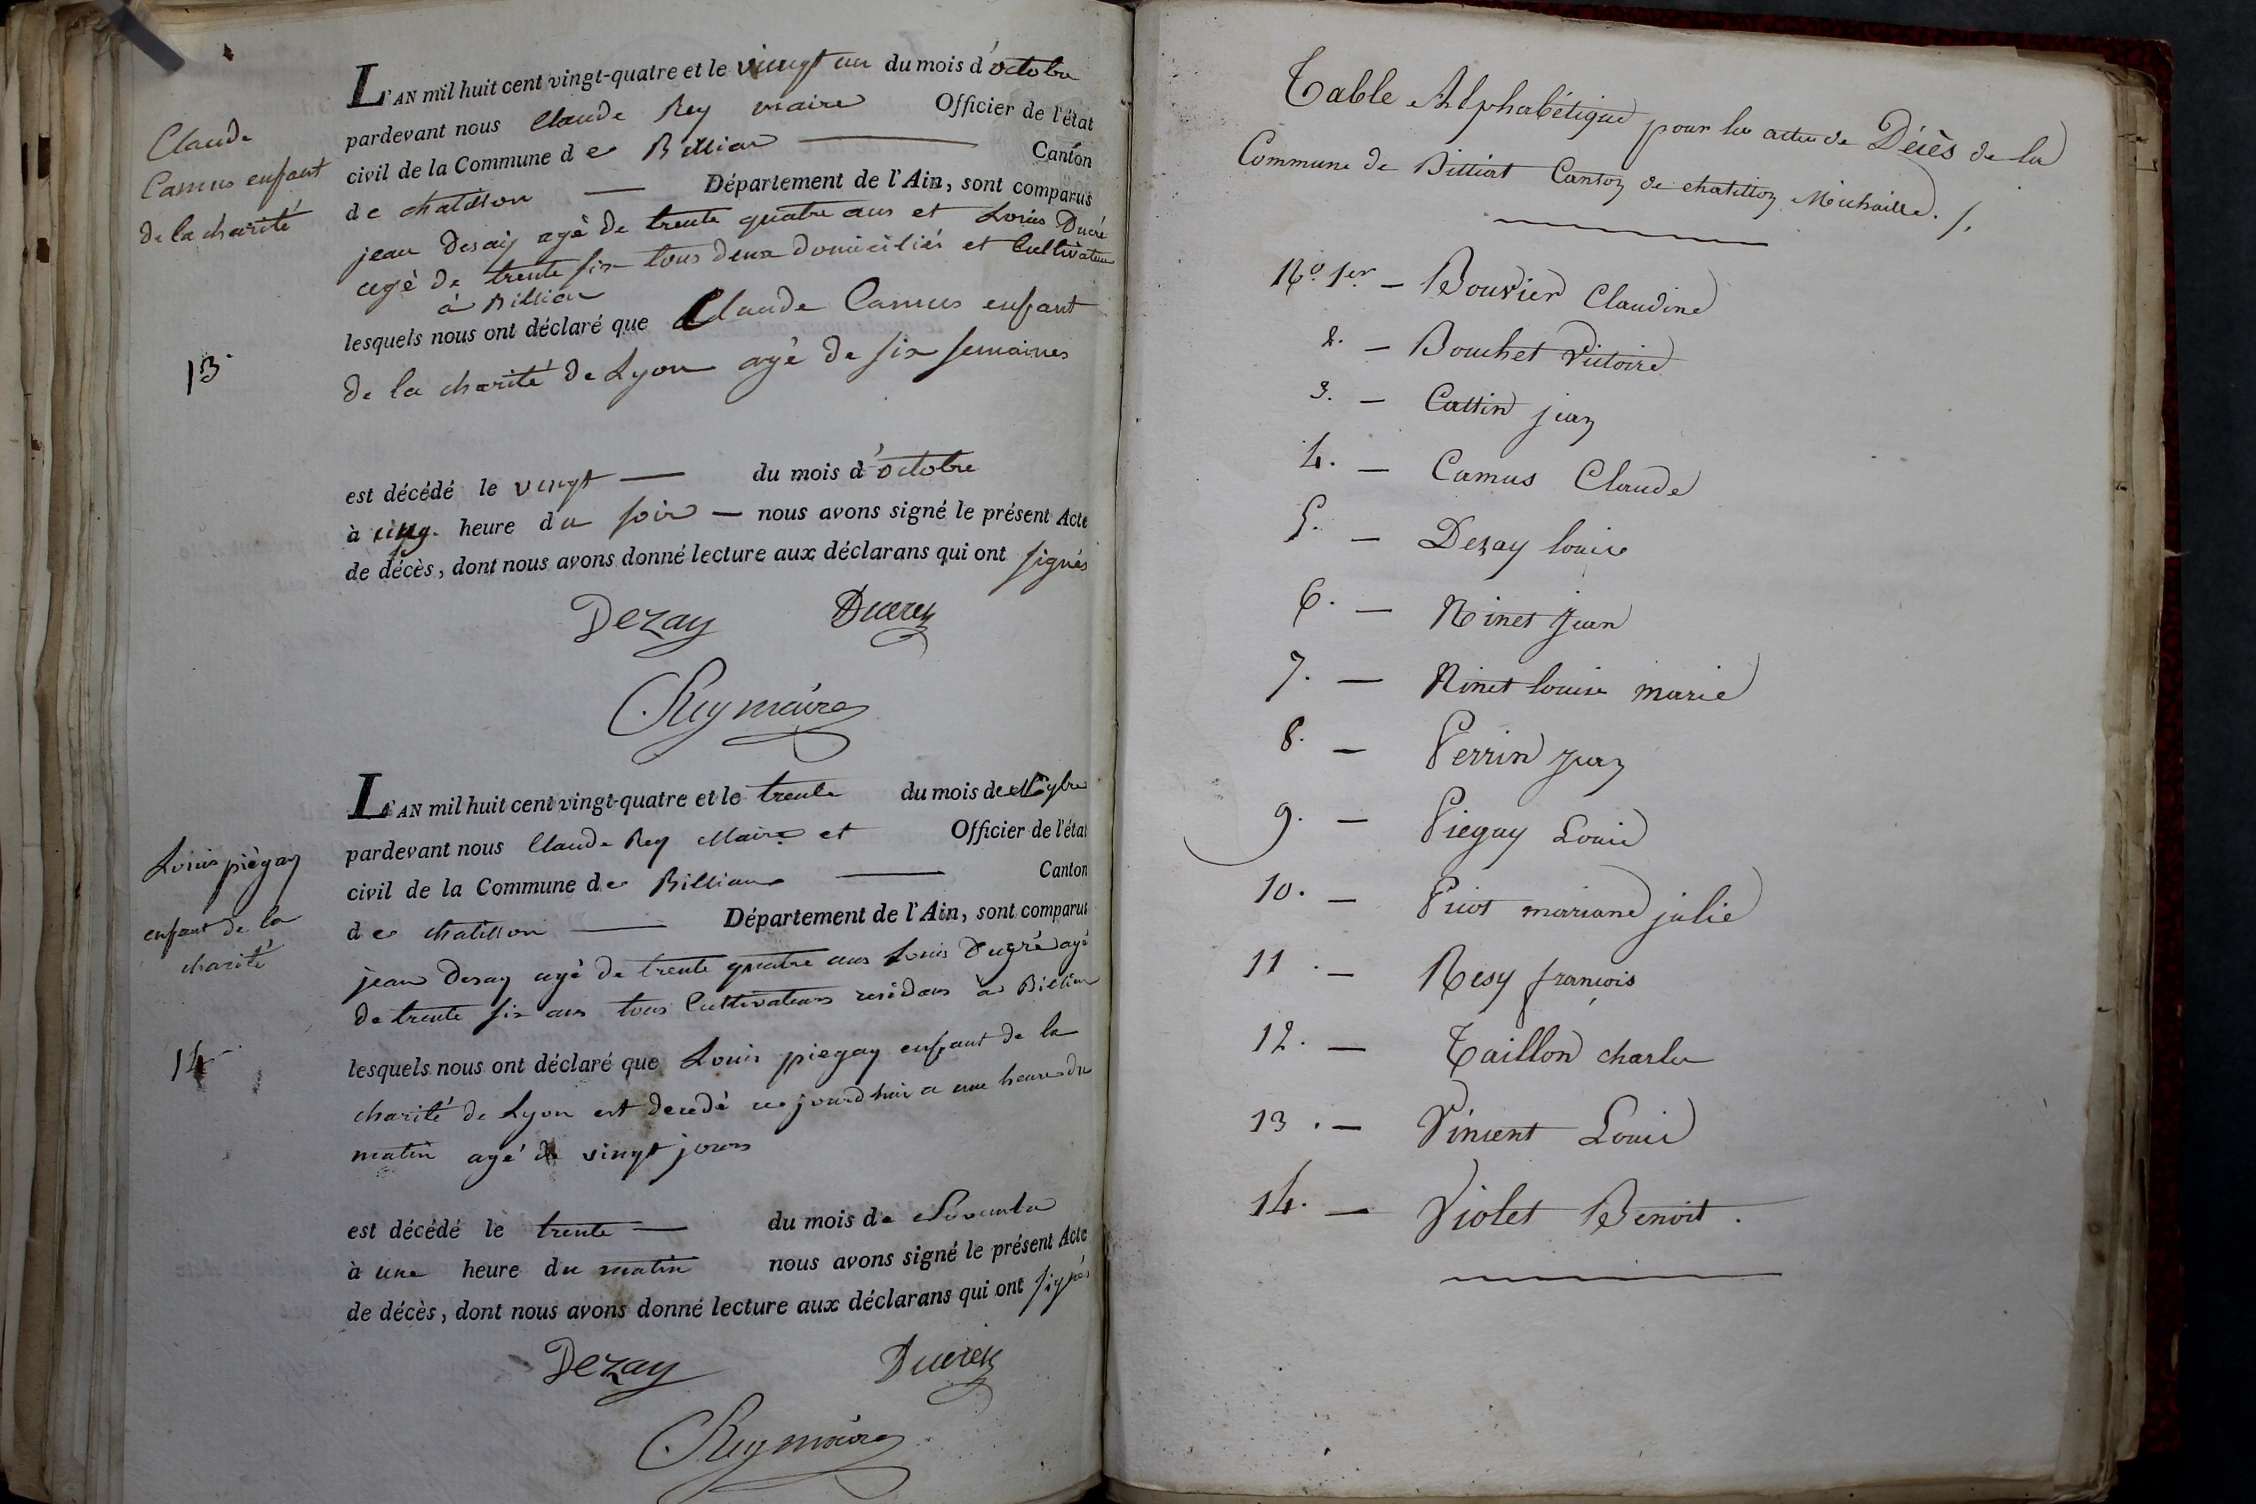 L'AN mil huit cent vingt-quatre et le vingt un du mois d'octobre
pardevant nous Claude Rey maire Officier de l'état
civil de la Commune de Billiat Canton
de chatillon Département de l'Ain, sont comparus
jean Desay agé de trente quatre ans et Louis Ducré
agé de trente six tous deux domiciliés et Cultivateurs
à Billiat
lesquels nous ont déclaré que Claude Camus enfant
de la charité de Lyon agé de six semaines
est décédé le vingt du mois d'octobre
à cinq heure du soir — nous avons signé le présent Acte
de décès, dont nous avons donné lecture aux déclarans qui ont signés
Dezay Ducrez
Rey maire
Claude
Camus enfant
de la charité
13
L'AN mil huit cent vingt-quatre et le trente du mois de 9bre
pardevant nous Claude Rey Maire et Officier de l'état
civil de la Commune de Billiat Canton
de chatillon Département de l'Ain, sont comparus
jean Desay agé de trente quatre ans Louis Ducré agé
de trente six ans tous Cultivateurs residans à Billiat
lesquels nous ont déclaré que Louis piegay enfant de la
charité de Lyon est decedé ce jourd'hui a une heure du
matin agé de vingt jours
est décédé le trente du mois de Novembre
à une heure du matin nous avons signé le présent Acte
de décès, dont nous avons donné lecture aux déclarans qui ont signés
Dezay Ducrez
Rey maire
Louis piègay
enfant de la
charité
14
Table Alphabétique pour les actes de Décès de la
Commune de Billiat Canton de chatillon Michaille.
No. 1er. — Bouvier Claudine
2. — Bouchet Victoire
3. — Cattin jean
4. — Camus Claude
5. — Dezay louise
6. — Ninet Jean
7. — Ninet louise marie
8. — Perrin Jean
9. — Piegay Louis
10. — Picot mariane julie
11. — Resy françois
12. — Taillon charles
13. — Vincent Louis
14. — Violet Benoit.